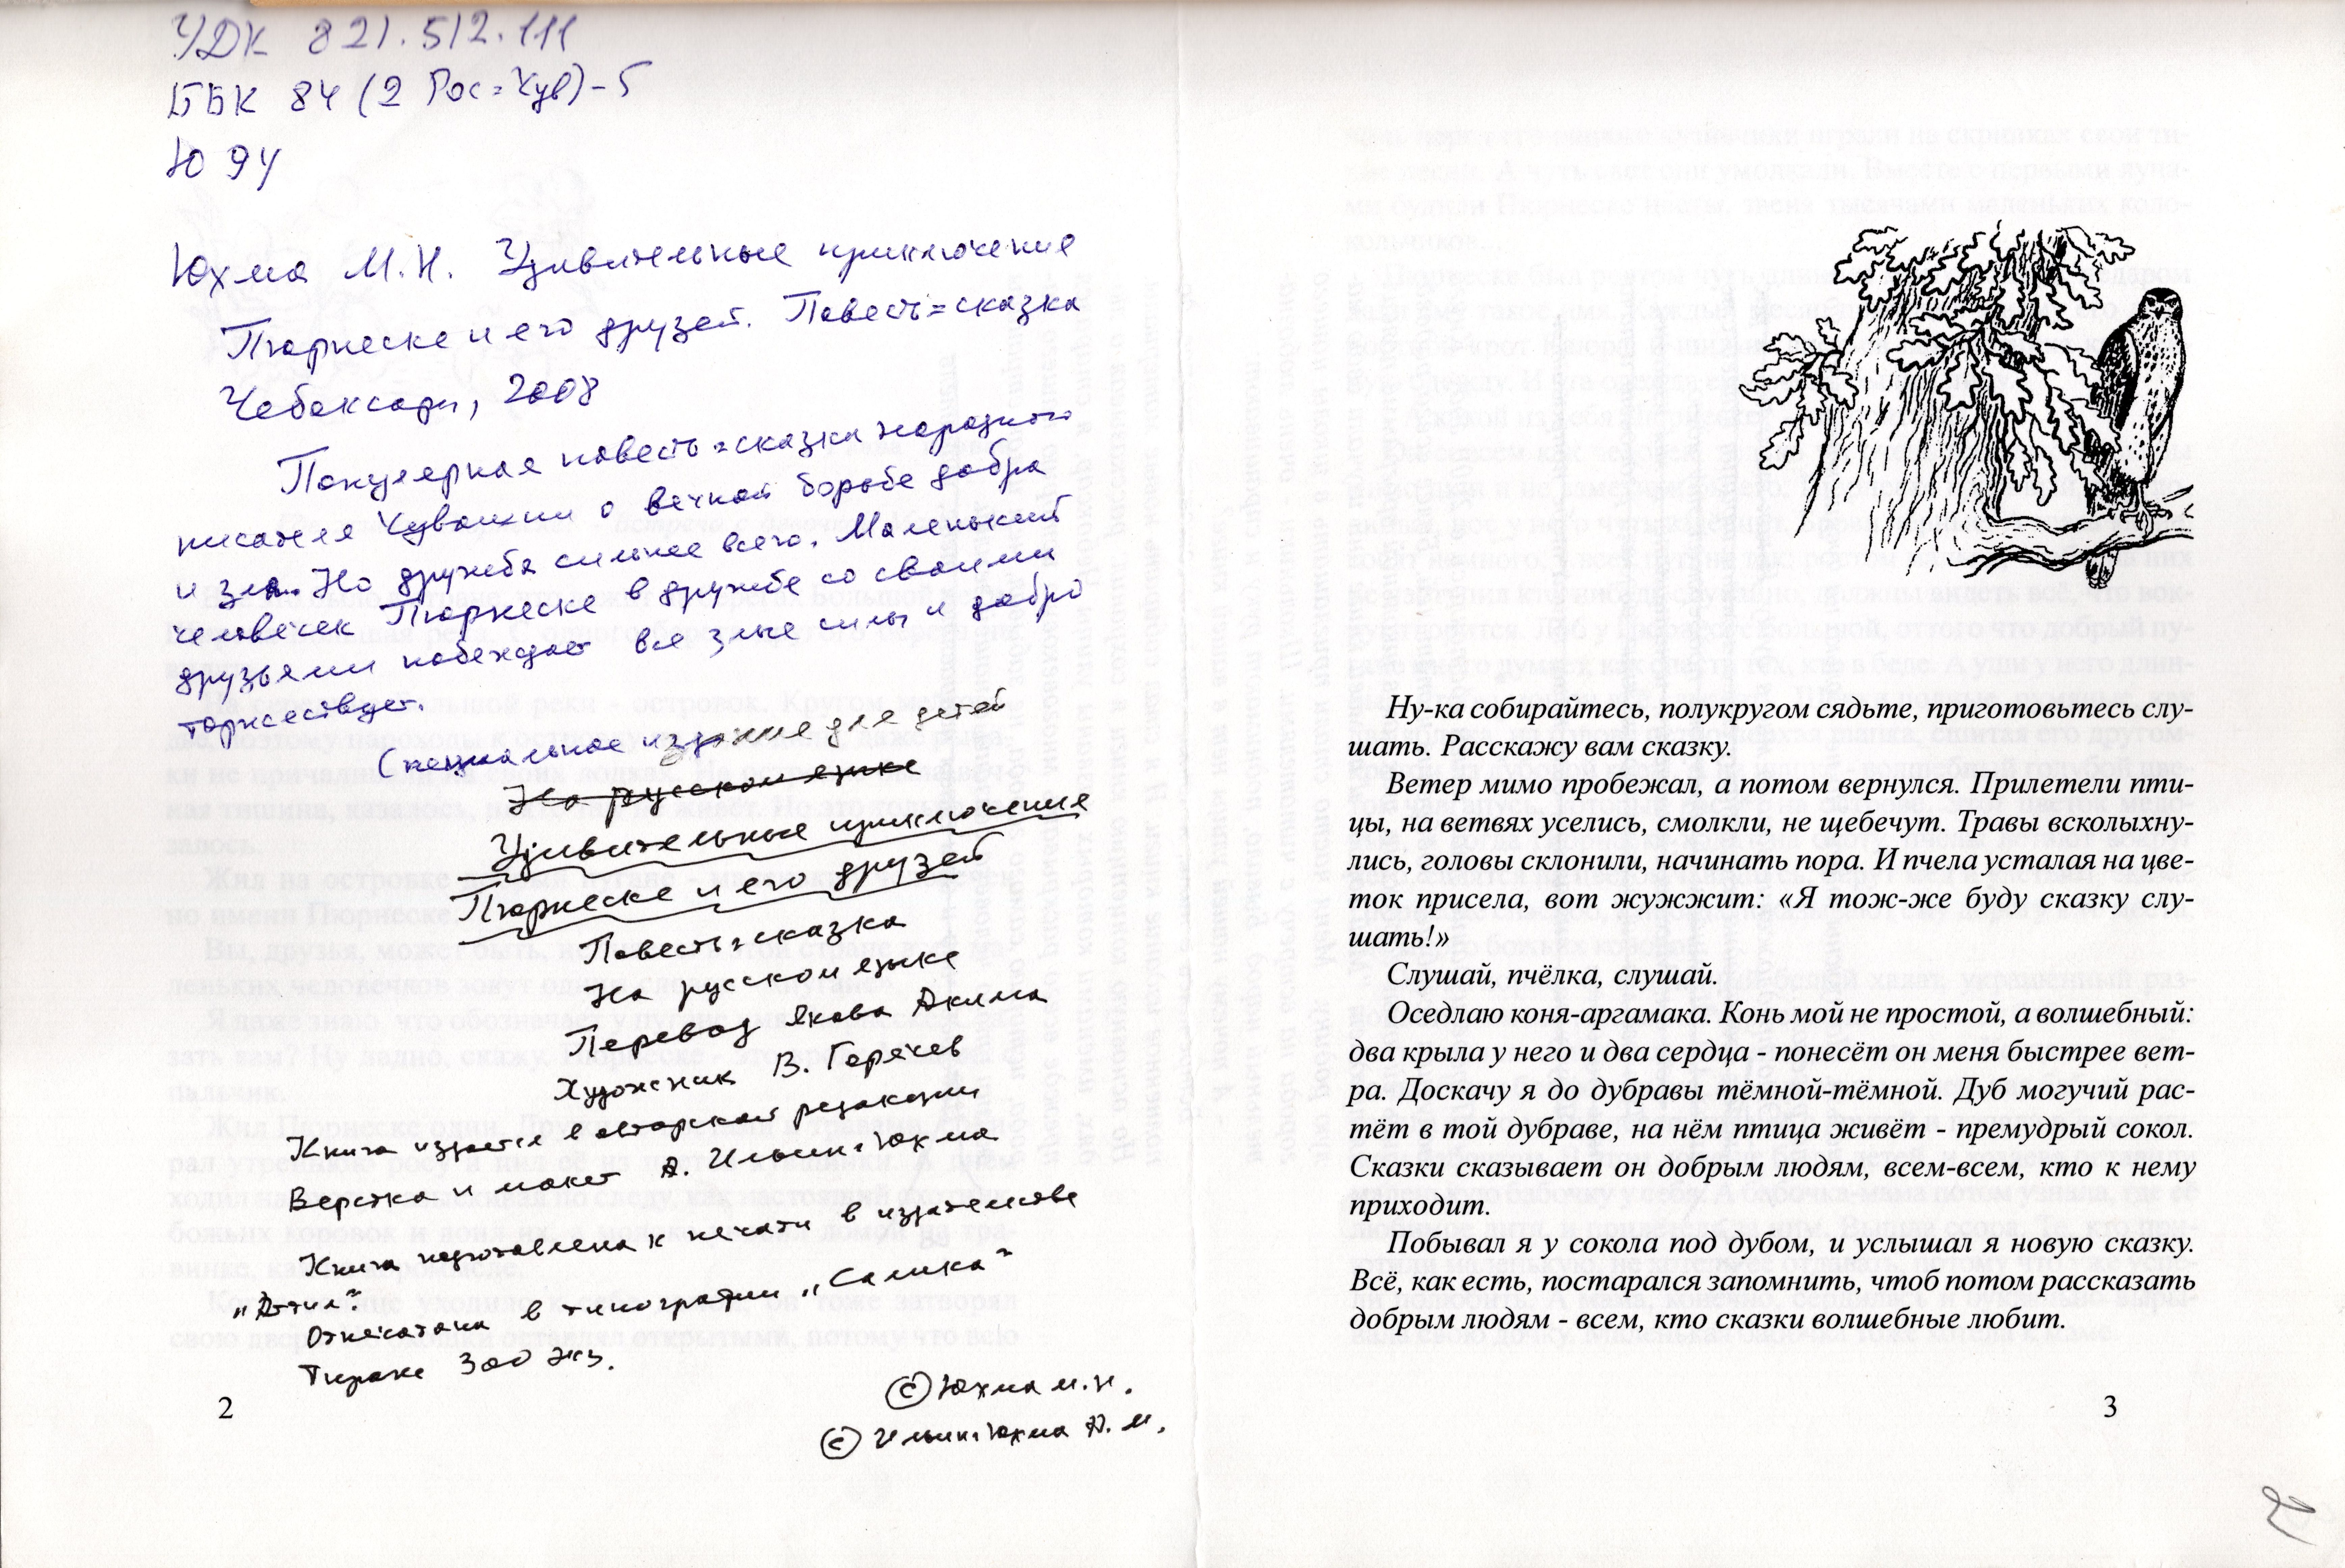 УДК 821.512.111
ББК 84 (2 Рос=Чув)-5
Ю 94
Юхма М.Н. Удивительные приключения
Пюрнеске и его друзей. Повесть=сказка
Чебоксары, 2008
Популярная повесть=сказка народного
писателя Чувашии о вечной борьбе добра
и зла. Но дружба сильнее всего. Маленький
человечек Пюрнеске в дружбе со своими
друзьями побеждает все злые силы и добро
торжествует.
Специальное издание для детей
На русском языке
Удивительные приключения
Пюрнеске и его друзей
Повесть=сказка
На русском языке
Перевод Якова Акима
Художник В. Горячев
Книга издается в авторской редакции
Верстка и макет А. Ильин=Юхма
Книга подготовлена к печати в издательстве
Отпечатана в типографии „Салика"
Тираж 300 экз.
© Юхма М.Н.
© Ильин=Юхма А.М.
2
Ну-ка собирайтесь, полукругом сядьте, приготовьтесь слу-
шать. Расскажу вам сказку.
Ветер мимо пробежал, а потом вернулся. Прилетели пти-
цы, на ветвях уселись, смолкли, не щебечут. Травы всколыхну-
лись, головы склонили, начинать пора. И пчела усталая на цве-
ток присела, вот жужжит: «Я тож-же буду сказку слу-
шать!»
Слушай, пчёлка, слушай.
Оседлаю коня-аргамака. Конь мой не простой, а волшебный:
два крыла у него и два сердца - понесёт он меня быстрее вет-
ра. Доскачу я до дубравы тёмной-тёмной. Дуб могучий рас-
тёт в той дубраве, на нём птица живёт - премудрый сокол.
Сказки сказывает он добрым людям, всем-всем, кто к нему
приходит.
Побывал я у сокола под дубом, и услышал я новую сказку.
Всё, как есть, постарался запомнить, чтоб потом рассказать
добрым людям - всем, кто сказки волшебные любит.
3